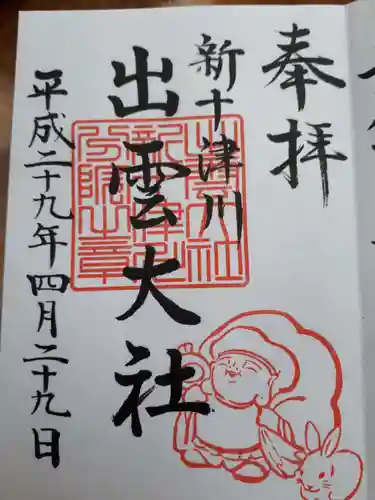 奉拝
新十津川
出雲大社
平成二十九年四月二十九日